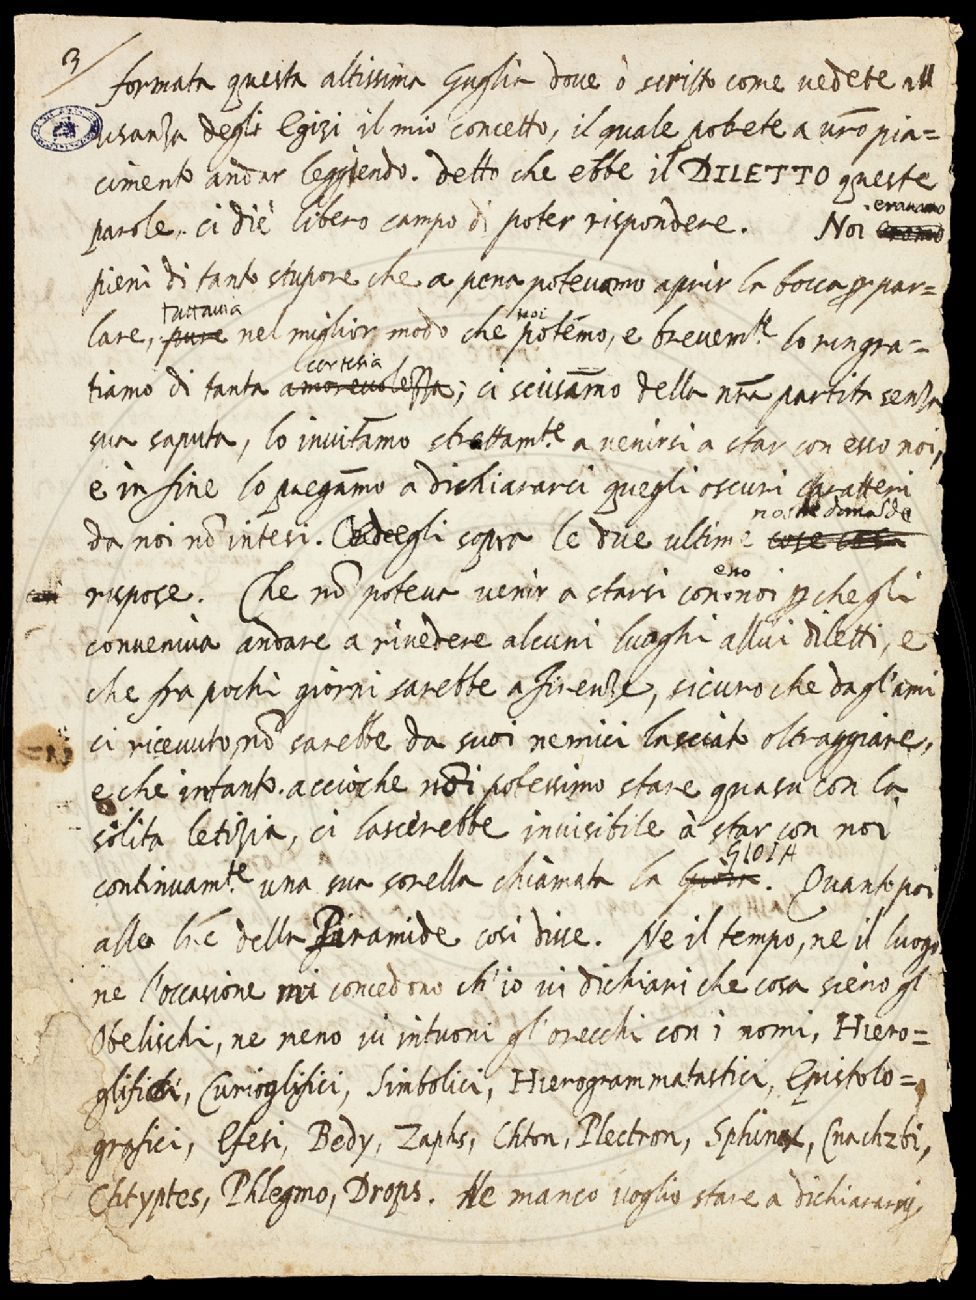 3
formata questa altissima Guglia dove ò scritto come vedete all
usanza degli Egizi il mio concetto, il quale potete a vr̃o pia=
cimento andar leggiendo. detto che ebbe il DILETTO queste
parole, ci diè libero campo di poter rispondere. Noi eravamo
pieni di tanto stupore che a pena potevamo aprir la bocca ꝑ par=
lare, pure tuttavia nel miglior modo che noi potémo, e brevem.te lo ringra=
tiamo di tanta amorevolezza cortesia; ci scusam̃o della nr̃a partita senza
sua saputa, lo invitam̃o strettam.te a venirsi a star con esso noi,
e in fine lo pregam̃o a dichiararci quegli oscuri caratteri
da noi nõ intesi. Ed egli sopra le due ultime nostre domande
rispose. Che nõ poteva venir a starsi con esso noi ꝑche gli
conveniva andare a rivedere alcuni luoghi allui diletti, e
che fra pochi giorni sarebbe a Firenze, sicuro che dagl'ami
ci ricevuto nõ sarebbe da suoi nemici lasciato oltraggiare,
e che intanto. acciòche noi potessimo stare quasu con la
solita letizia, ci lascerebbe invisibile à star con noi
continuam.te una sua sorella chiamata la Gioia GIOIA. Quanto poi
alle lr̃e della Piramide così disse. Ne il tempo, ne il luogo
ne l'occasione mi concedono ch'io vi dichiari che cosa sieno gl'
Obelischi, ne meno vi intuoni gl'orecchi con i nomi, Hiero=
glifici, Curioglifici, Simbolici, Hierogrammatastici, Epistolo=
grafici, Efesi, Bedy, Zaphs, Chton, Plectron, Sphinx, Cnachzbi,
Chtyptes, Phlegmo, Drops. Ne manco voglio stare a dichiararvi